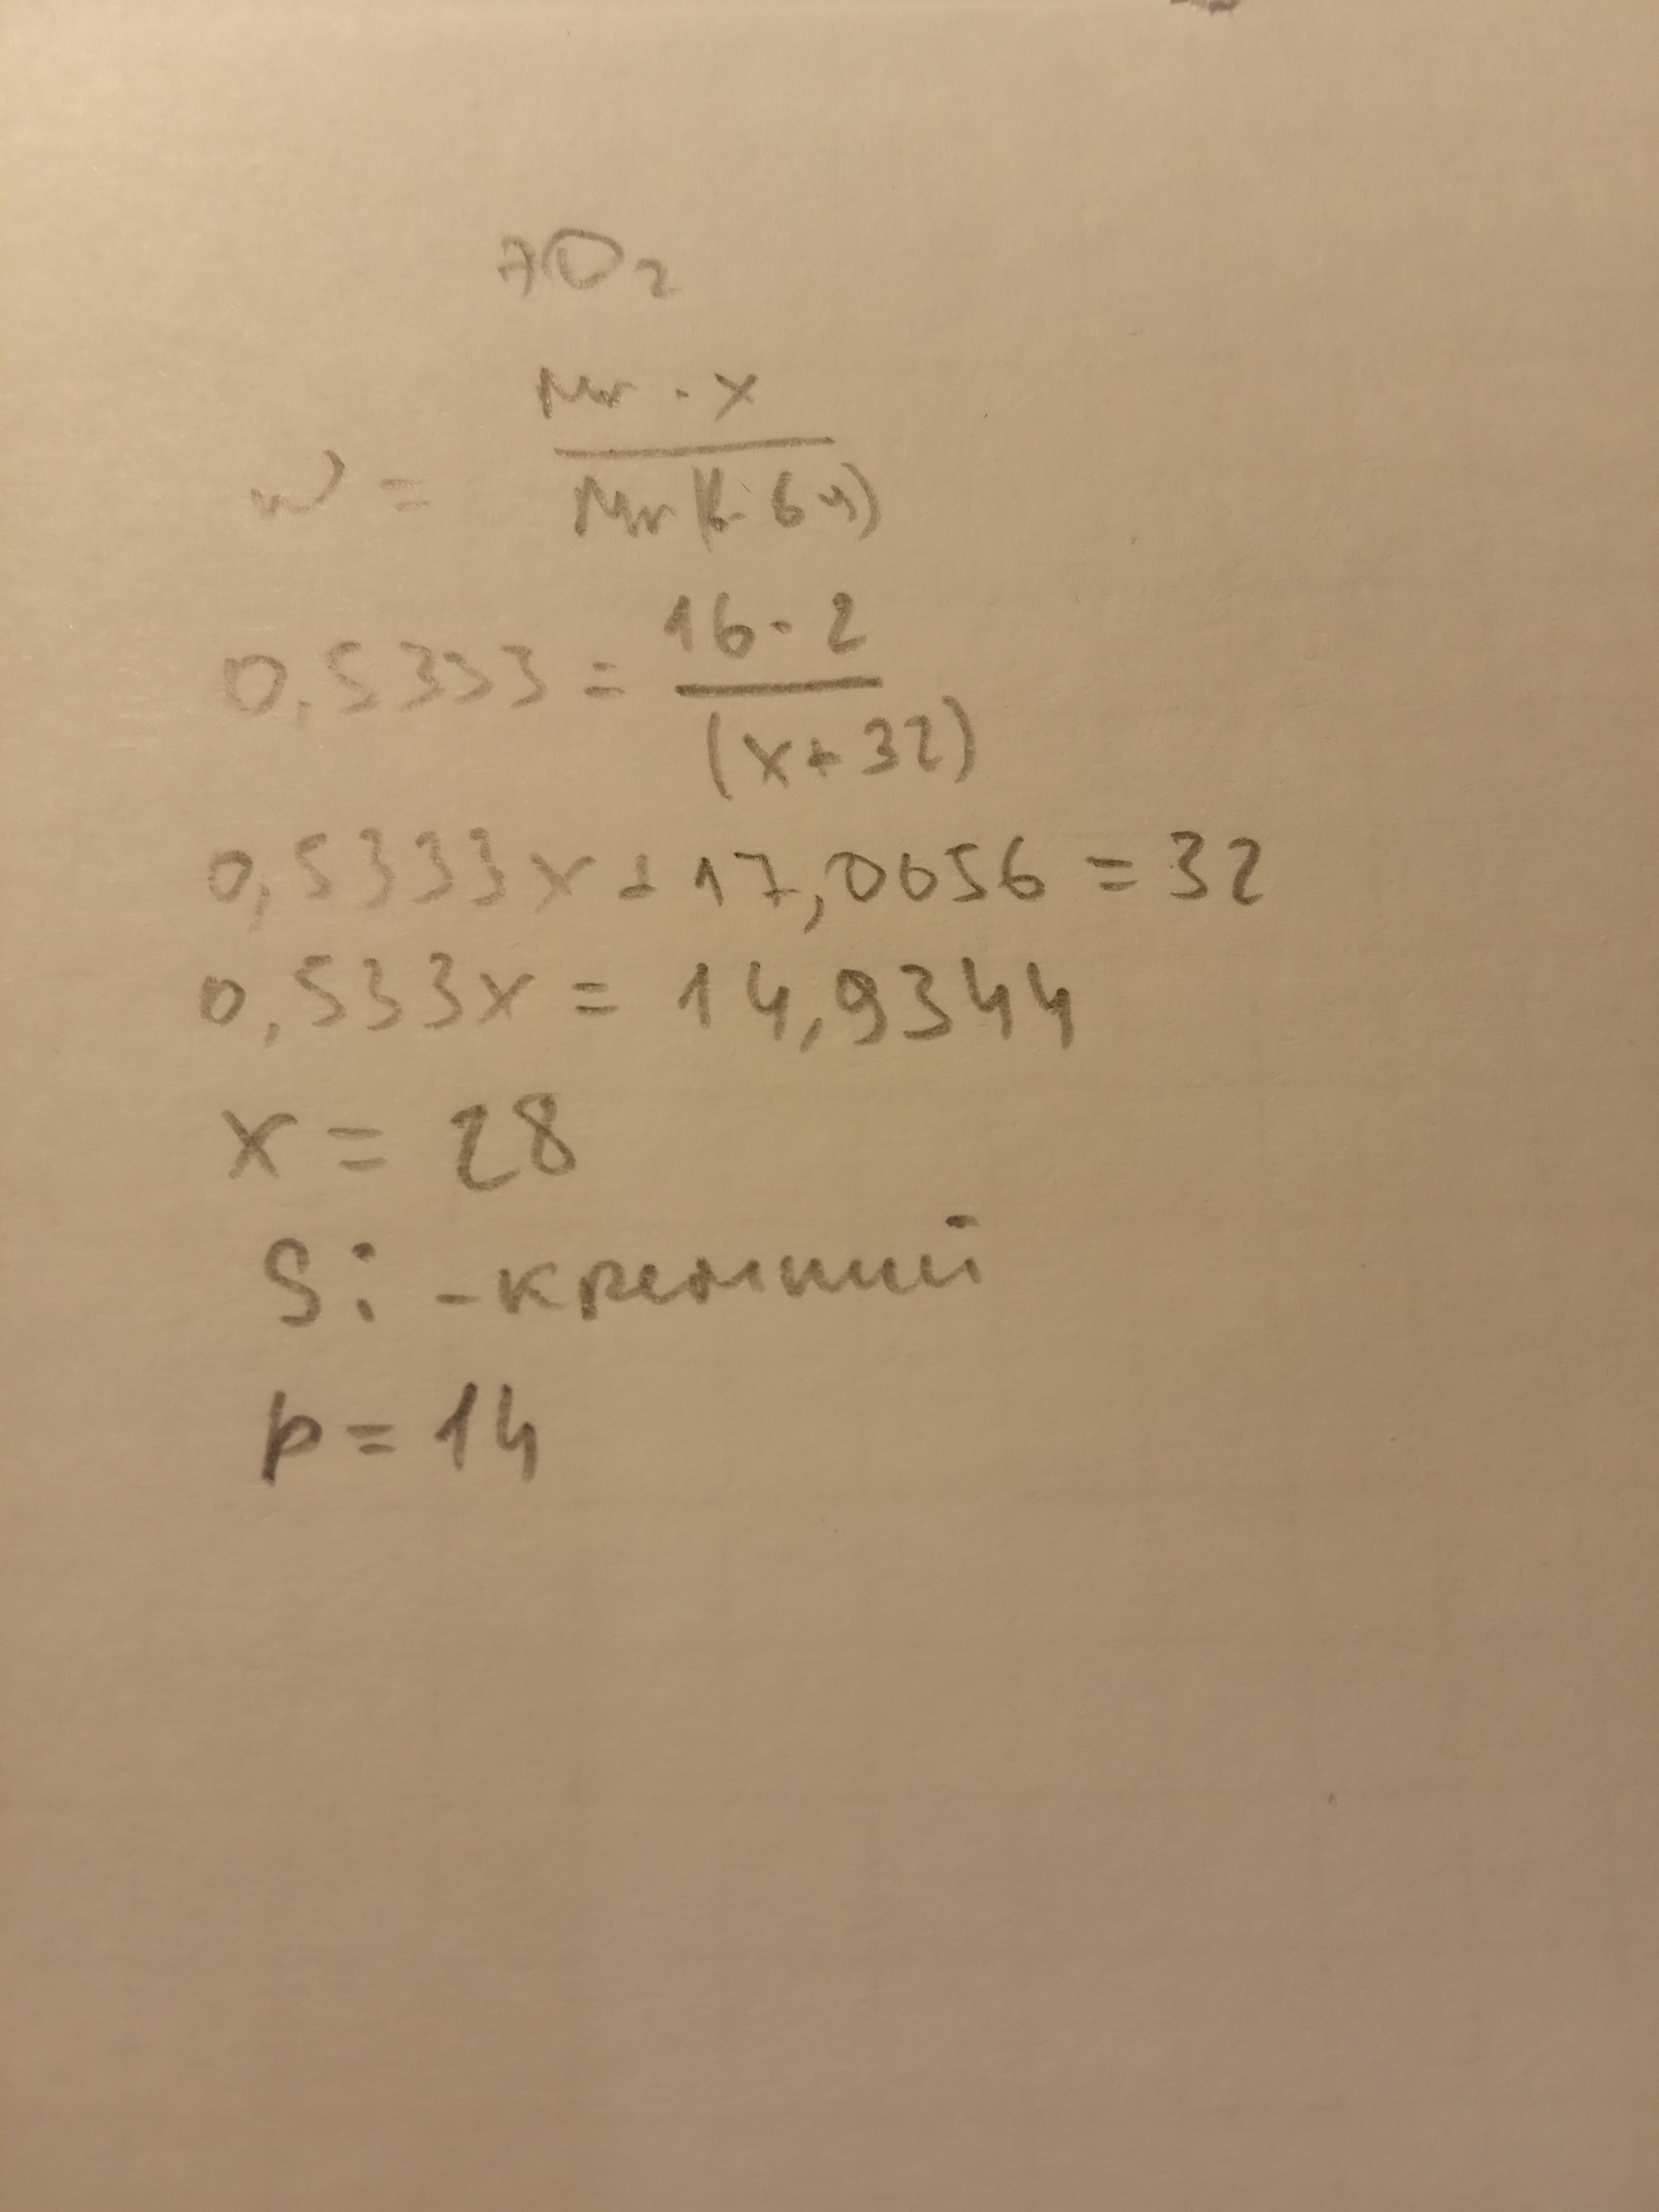 ЭO₂
w = Mr · x / Mr (в-ва)
0,5333 = 16 · 2 / (x + 32)
0,5333x + 17,0656 = 32
0,533x = 14,9344
x = 28
Si - кремний
p = 14